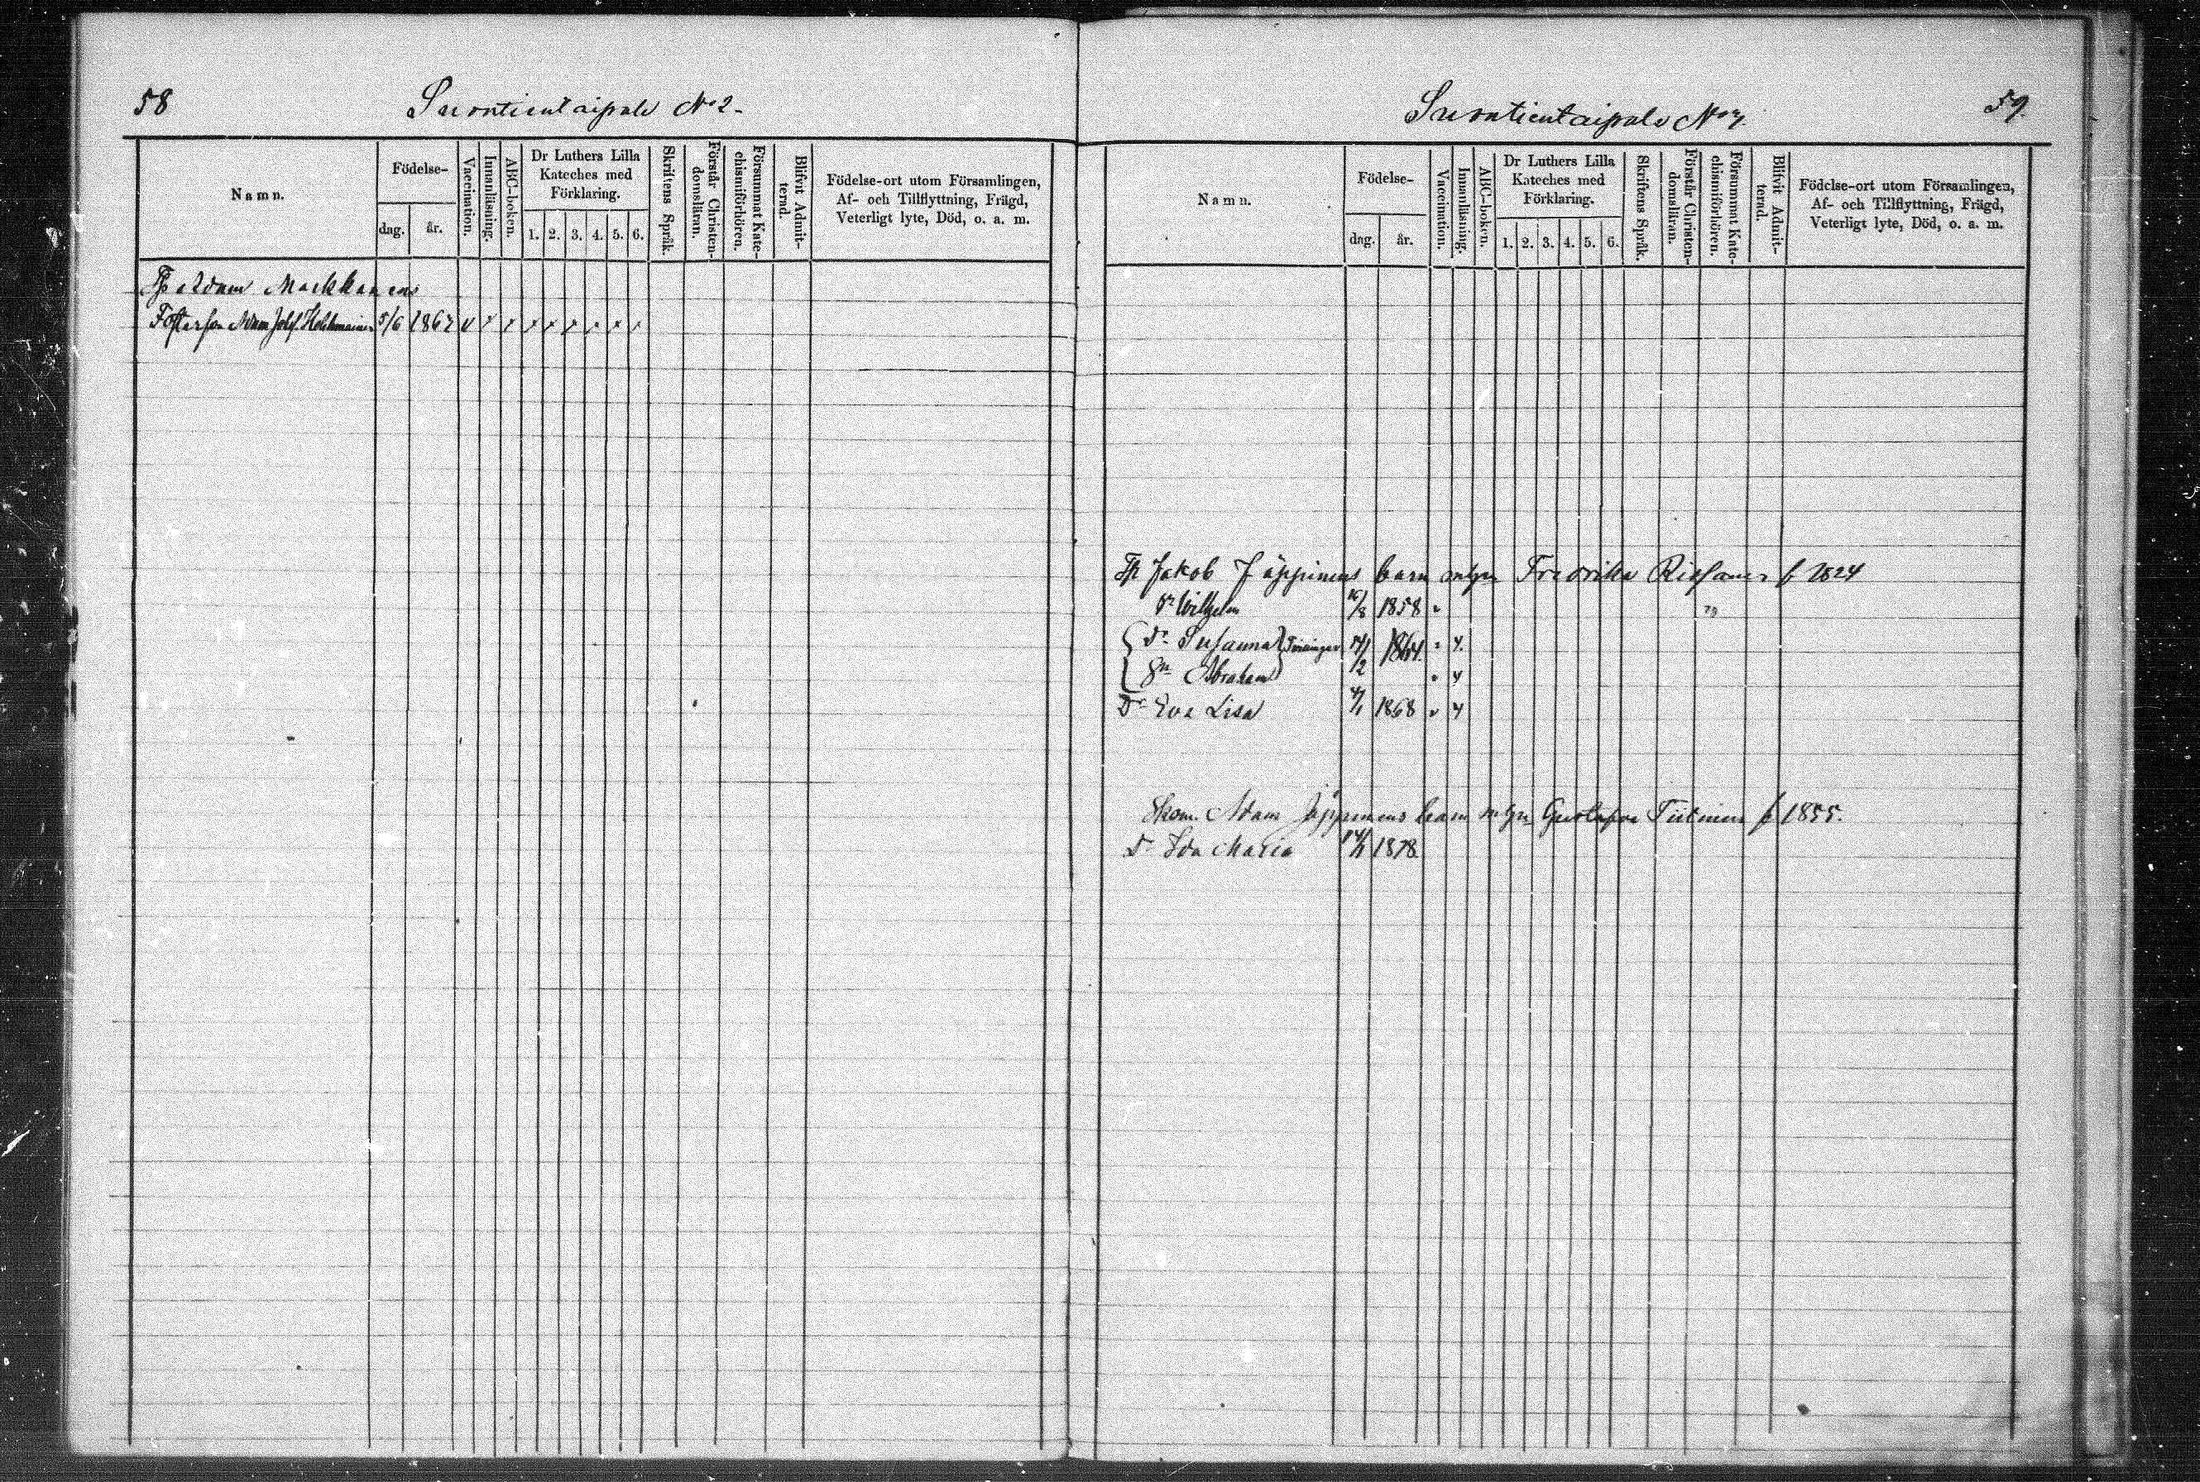 58
Suontientaipale No 2.
Namn.
Födelse-
dag.
år.
Vaccination.
Innanläsning.
ABC-boken.
Dr Luthers Lilla
Kateches med
Förklaring.
1. 2. 3. 4. 5. 6.
Skriftens Språk.
Förstår Christen-
domsläran.
Försummat Kate-
chismiförhören.
Blifvit Admit-
terad.
Födelse-ort utom Församlingen,
Af- och Tillflyttning, Frägd,
Veterligt lyte, Död, o. a. m.
Adam Markkanens
Fosterson Adam 5/6 1867
59.
Suontientaipale No
Namn.
Födelse-
dag.
år.
Vaccination.
Innanläsning.
ABC-boken.
Dr Luthers Lilla
Kateches med
Förklaring.
1. 2. 3. 4. 5. 6.
Skriftens Språk.
Förstår Christen-
domsläran.
Försummat Kate-
chismiförhören.
Blifvit Admit-
terad.
Födelse-ort utom Församlingen,
Af- och Tillflyttning, Frägd,
Veterligt lyte, Död, o. a. m.
Jakob Jäppinens barn Fredrika Rissanen f 1824
Sn Wilhelm 16/8 1858
Dr Susanna Tvillingar 14/2 1864
Sn Abraham
Dr Eva Lisa 4/1 1868
Adam Jäppinens barn Gustafva Tiitinen f 1855.
Dr Ida Maria 14/1 1878